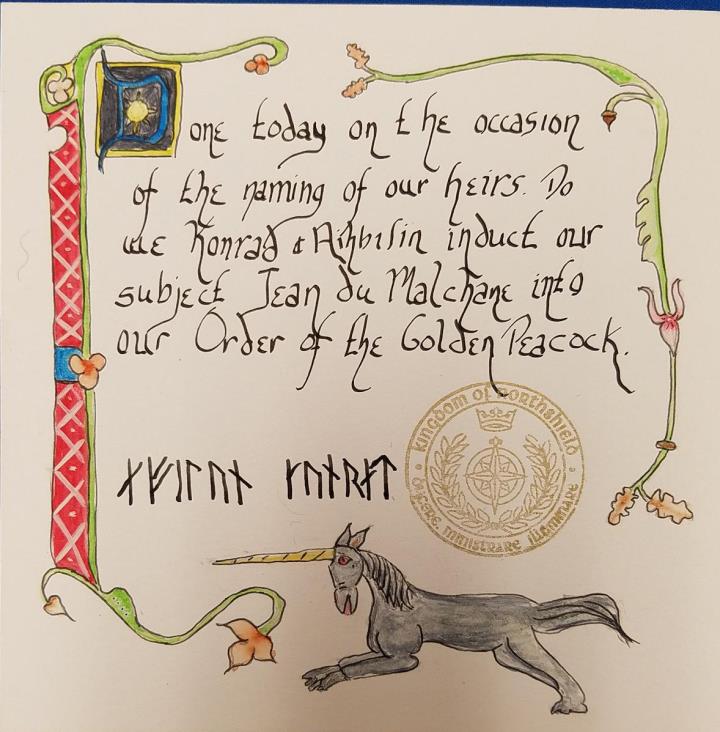 Done today on the occasion
of the naming of our heirs. Do
we Konrad & Aihbilin induct our
subject Jean du Malchane into
our Order of the Golden Peacock.
ᛅᚠᛁᛚᚢᚾ ᚴᚢᚾᚱᛅᛏ
Kingdom of Northshield
Ducere, Ministrare, Illuminare